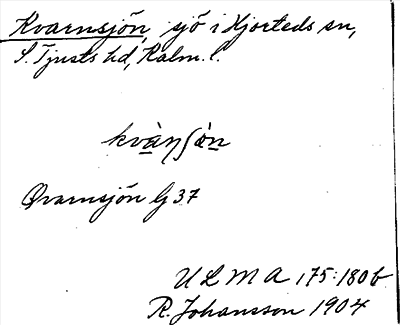 Kvarnsjön, sjö i Hjorteds sn,
S. Tjusts hd, Kalm. l.
kvàṇʃòn
Qvarnsjön G 37
ULMA 175:180 b
R. Johansson 1904